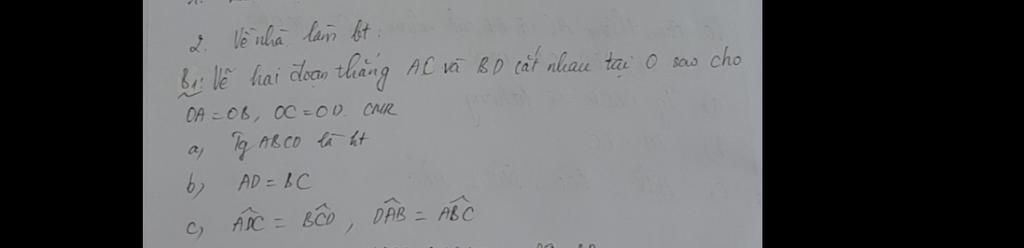 2. Về nhà làm bt:
B1: Vẽ hai đoạn thẳng AC và BD cắt nhau tại O sao cho
OA = OB, OC = OD. CMR
a, Tg ABCD là ht
b, AD = BC
c, \widehat{ADC} = \widehat{BCD}, \widehat{DAB} = \widehat{ABC}